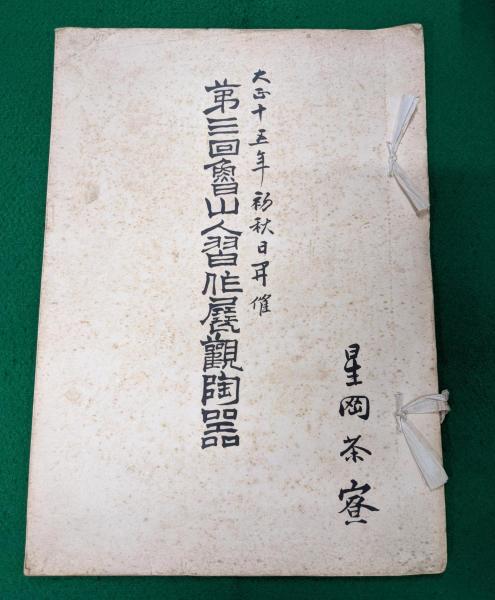 大正十五年初秋日开催
第三回魯山人習作展観陶器
星岡茶寮